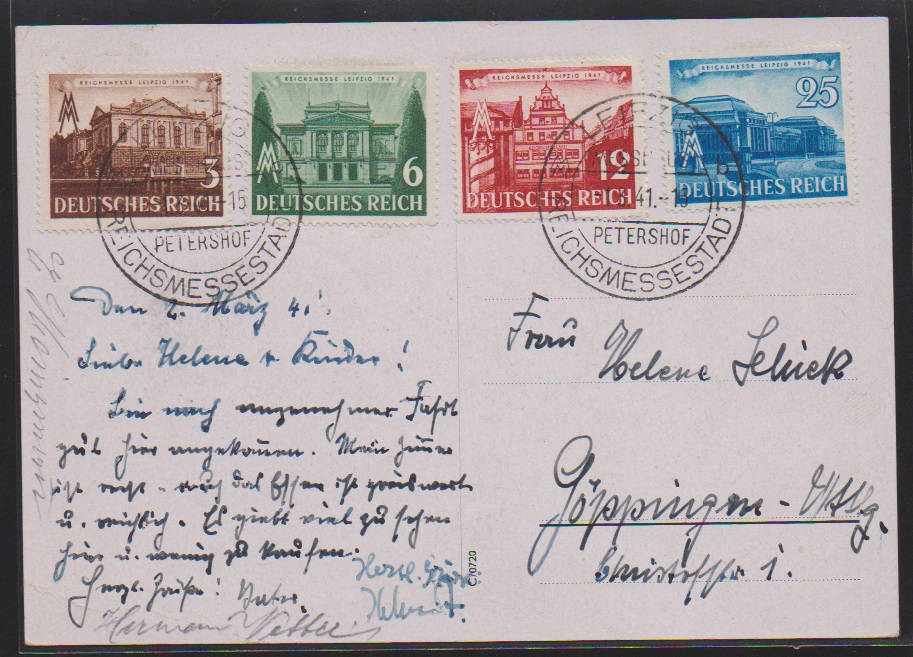 REICHSMESSE LEIPZIG 1941
3
DEUTSCHES REICH
REICHSMESSE LEIPZIG 1941
6
DEUTSCHES REICH
REICHSMESSE LEIPZIG 1941
12
DEUTSCHES REICH
REICHSMESSE LEIPZIG 1941
25
DEUTSCHES REICH
15
PETERSHOF
REICHSMESSESTADT
LEIPZIG
b
41.-15
PETERSHOF
REICHSMESSESTADT
Den 2. März 41.
Liebe Helene + Kinder!
Bin nach angenehmer Fahrt
gut hier angekommen. Mein Zimmer
ist recht - auch das Essen ist preiswert
u. reichlich. Es giebt viel zu sehen
hier u. wenig zu kaufen.
Herzl. Grüße! Vater.
Herzl. Grüße
Helmut
Hermann Vetter
Frau
Helene Schick
Göppingen - Wttbg.
1.
C10720